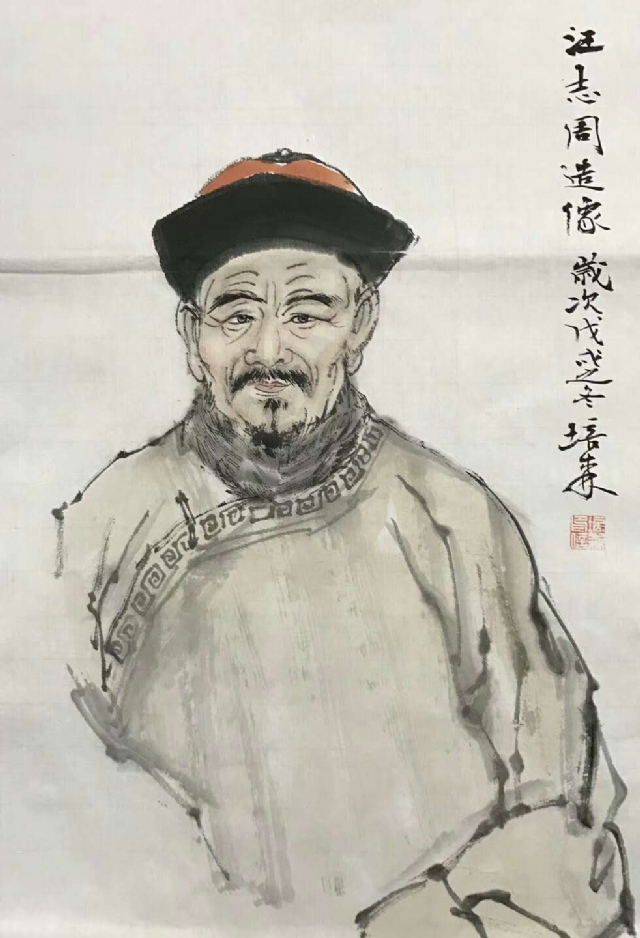 汪志周造像 歲次戊戌之冬 培森